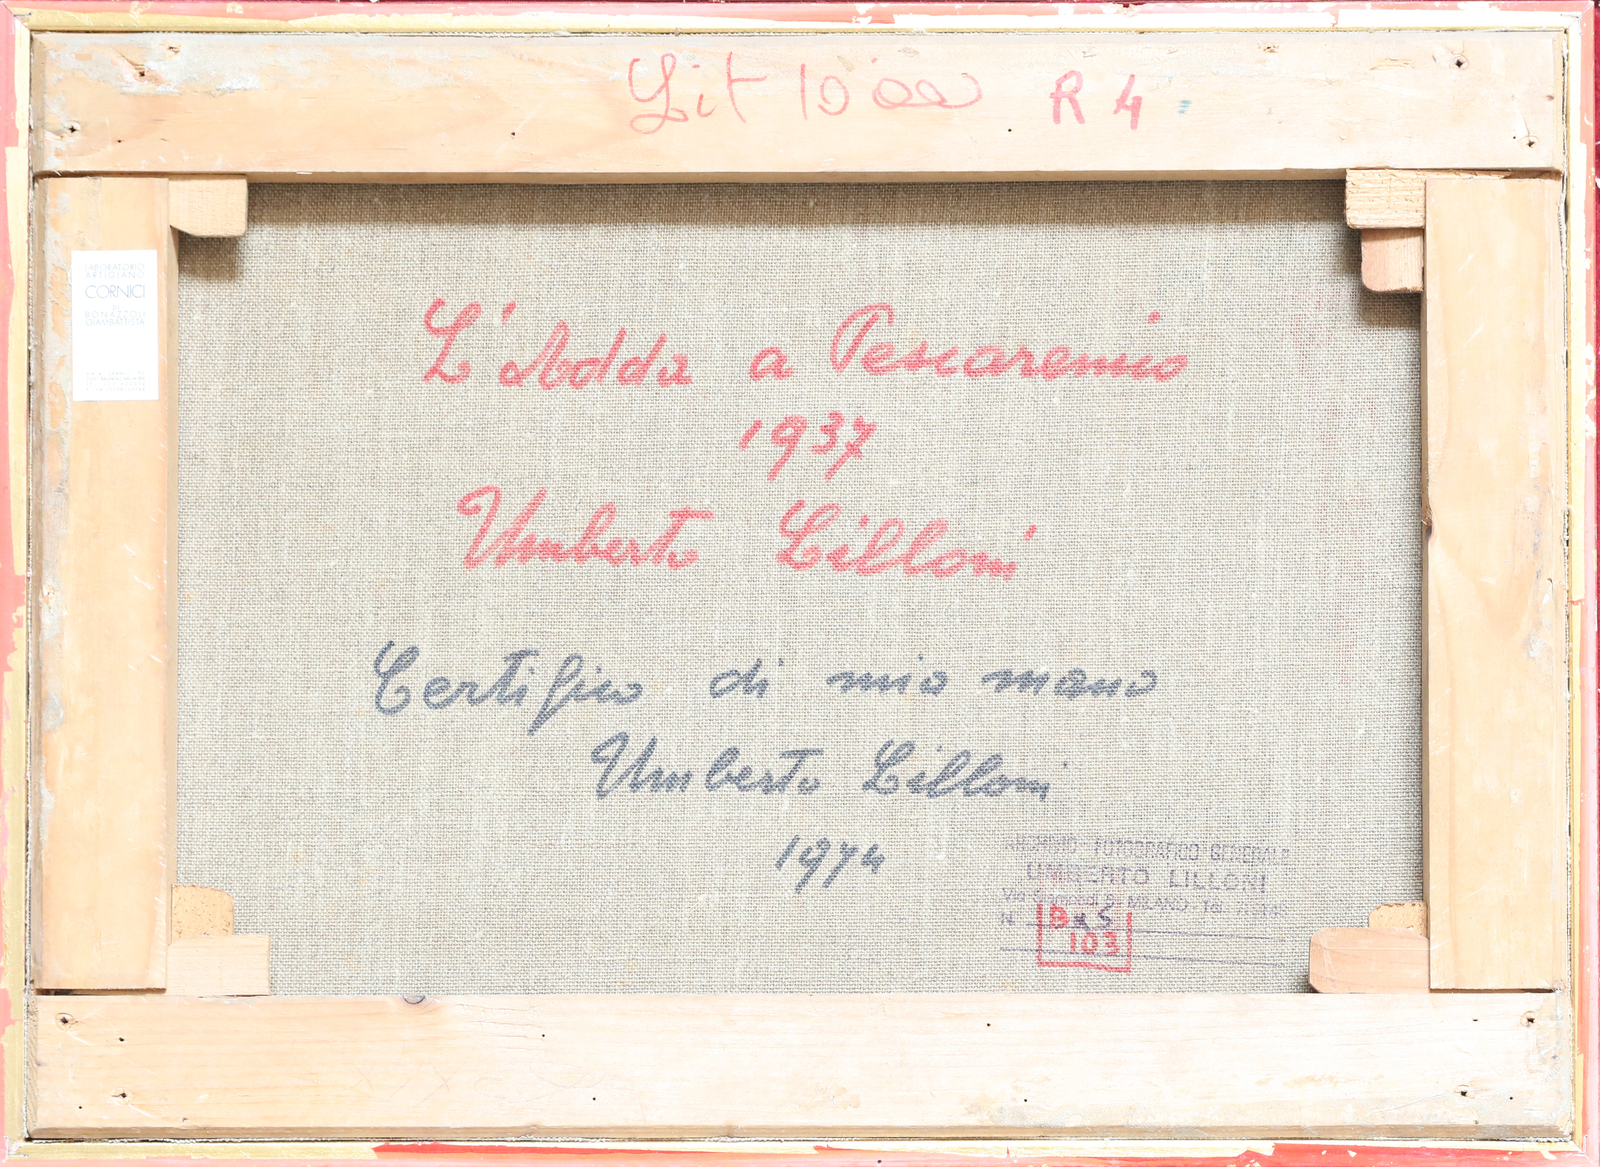 Lit 10'000 R 4
LABORATORIO
ARTIGIANO
CORNICI
DI
BONAZZOLI
GIAMBATTISTA
L'Adda a Pescarenico
1937
Umberto Lilloni
Certifico di mia mano
Umberto Lilloni
1974
ARCHIVIO FOTOGRAFICO GENERALE
UMBERTO LILLONI
MILANO - Tel.
N
103